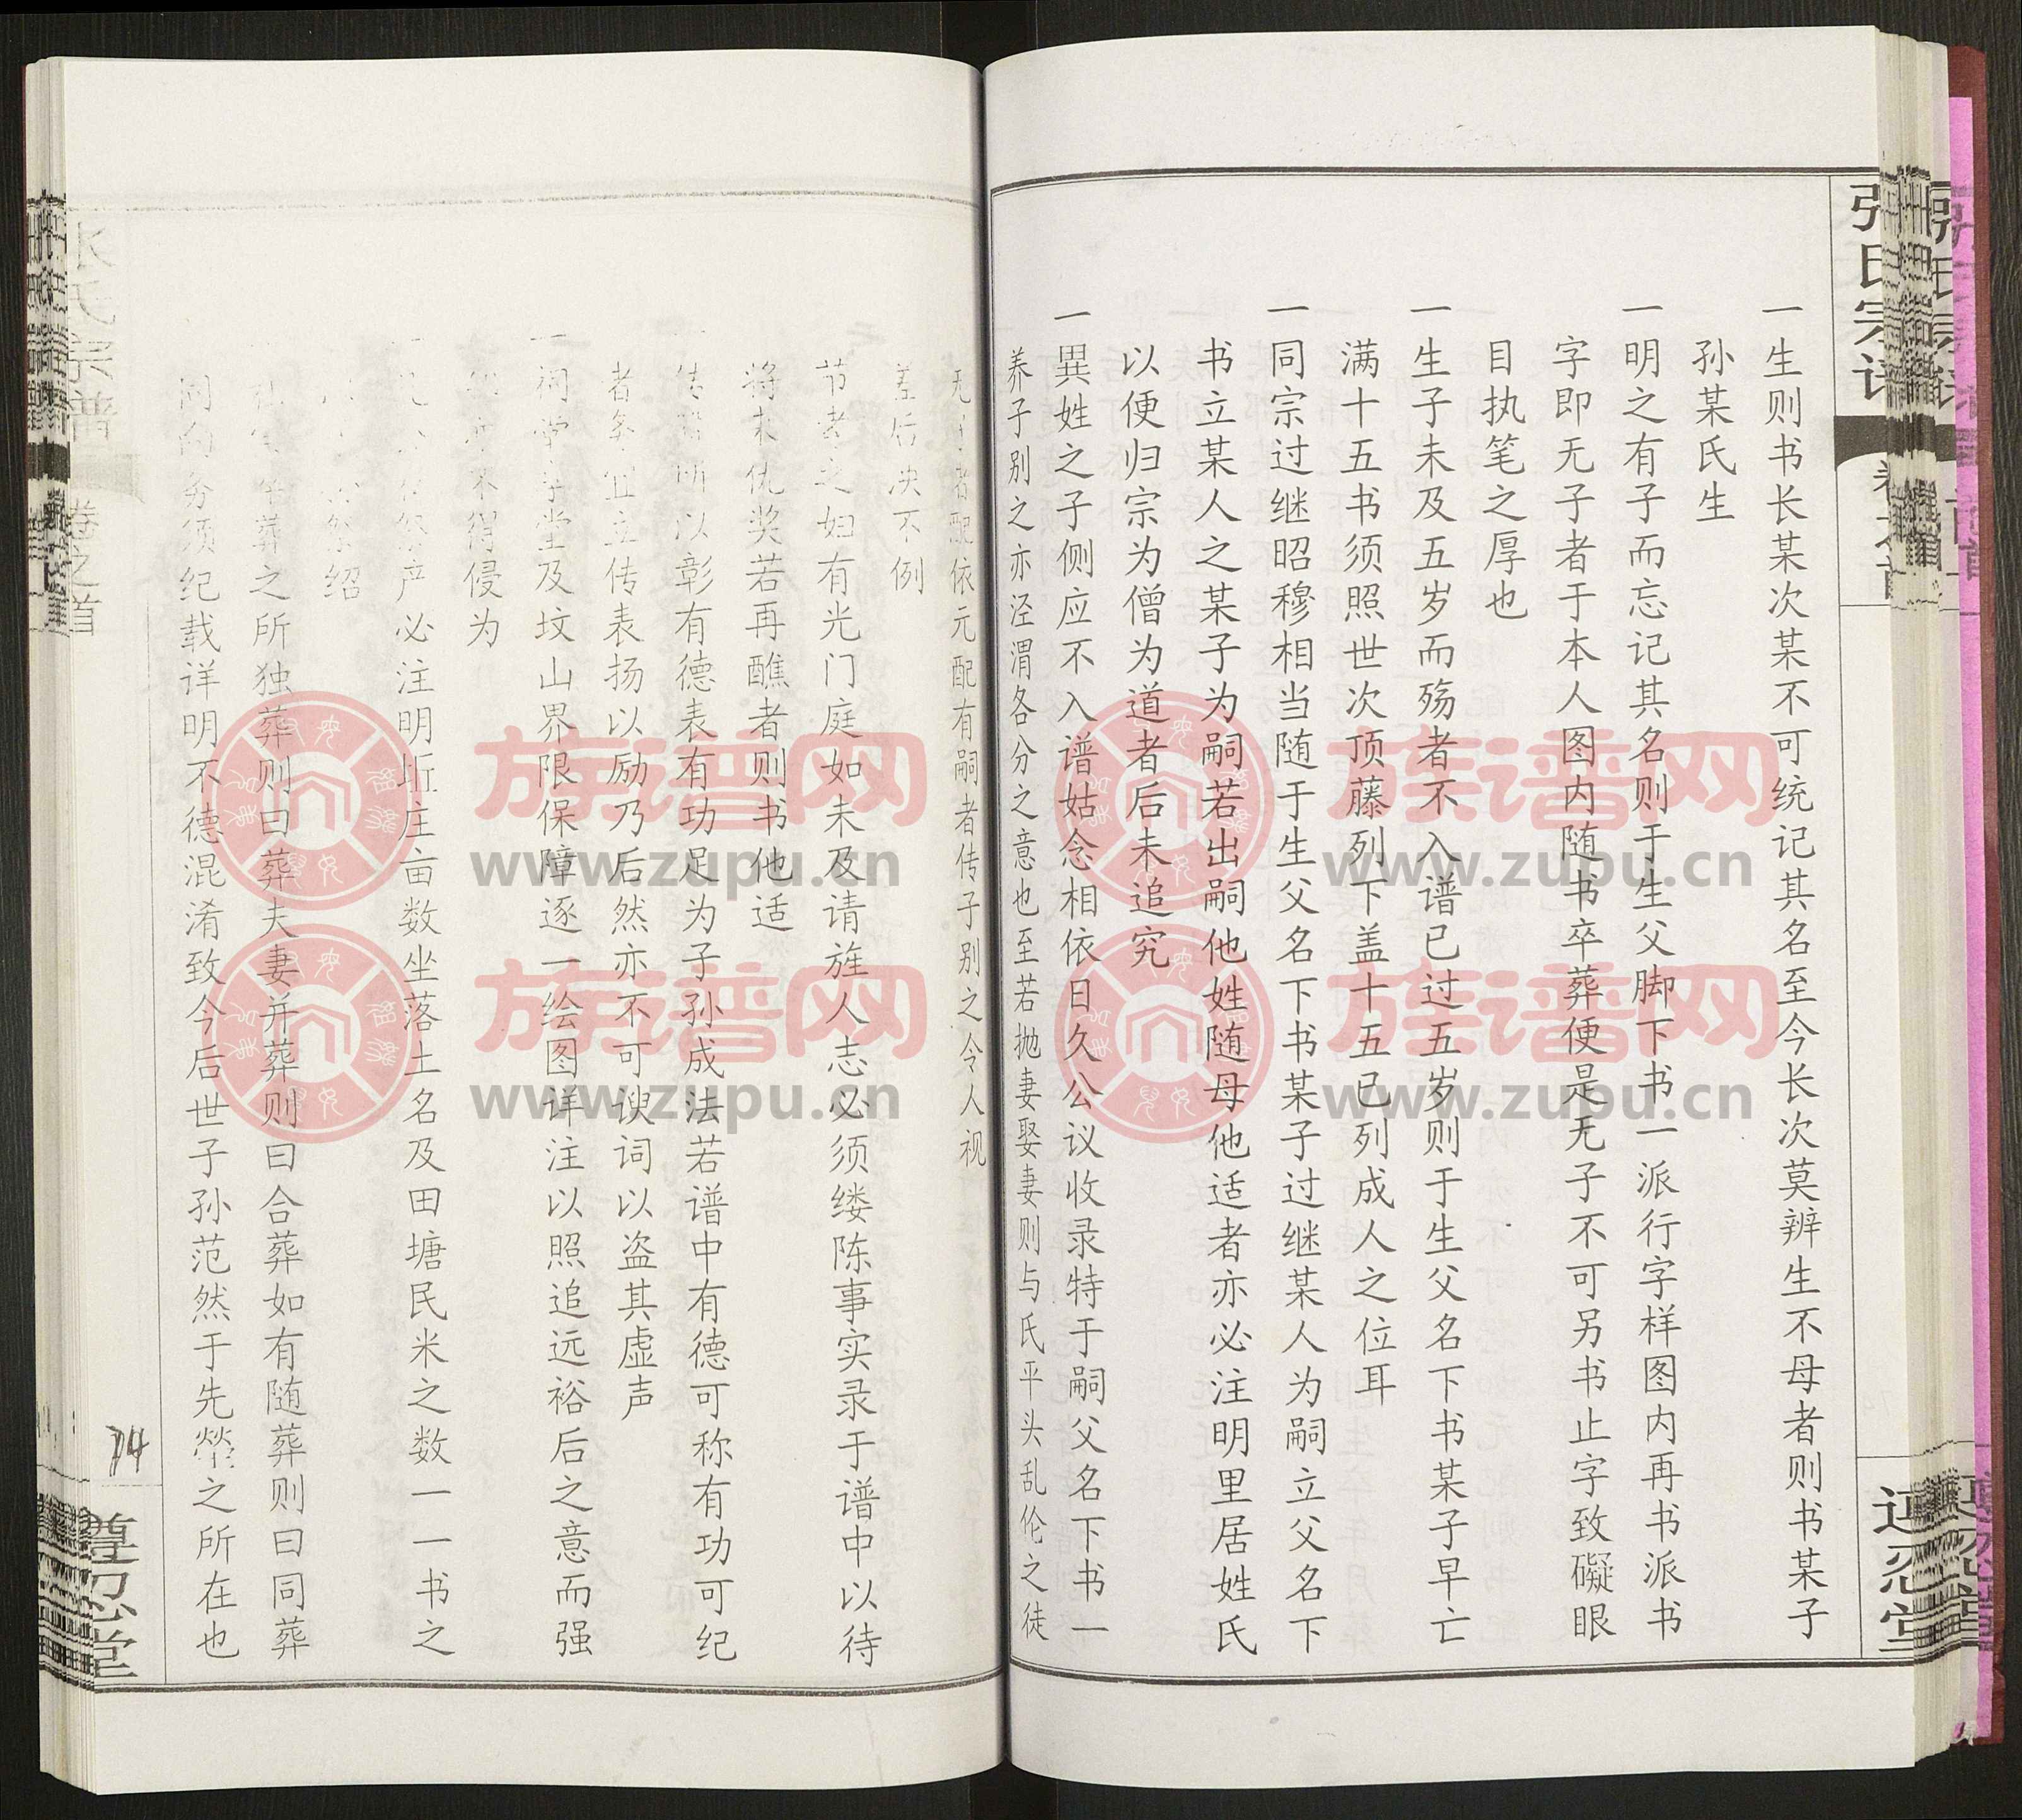 张氏宗谱
卷之首
一生则书长某次某不可统记其名至今长次莫辨生不母者则书某子
孙某氏生
一明之有子而忘记其名则于生父脚下书一派行字样图内再书派书
字即无子者于本人图内随书卒葬便是无子不可另书止字致礙眼
目执笔之厚也
一生子未及五岁而殇者不入谱已过五岁则于生父名下书某子早亡
满十五书须照世次顶藤列下盖十五已列成人之位耳
一同宗过继昭穆相当随于生父名下书某子过继某人为嗣立父名下
书立某人之某子为嗣若出嗣他姓随母他适者亦必注明里居姓氏
以便归宗为僧为道者后未追究
一異姓之子侧应不入谱姑念相依日久公议收录特于嗣父名下书一
养子别之亦泾渭各分之意也至若抛妻娶妻则与氏平头乱伦之徒
者配依元配有嗣者传子别之令人视
差后决不例
节者之妇有光门庭如未及请旌人志必须缕陈事实录于谱中以待
将来仇奖若再醮者则书他适
传 所以彰有德表有功足为子孙成法若谱中有德可称有功可纪
者务宜立传表扬以励乃后然亦不可谀词以盗其虚声
一祠堂学堂及坟山界限保障逐一绘图详注以照追远裕后之意而强
不得侵为
产必注明坵庄亩数坐落土名及田塘民米之数一一书之
绍
葬之所独葬则曰葬夫妻并葬则曰合葬如有随葬则曰同葬
同向务须纪载详明不德混淆致今后世子孙范然于先茔之所在也
张氏宗谱
卷之首
74
尊忍堂
族谱网
www.zupu.cn
族谱网
www.zupu.cn
族谱网
www.zupu.cn
族谱网
www.zupu.cn